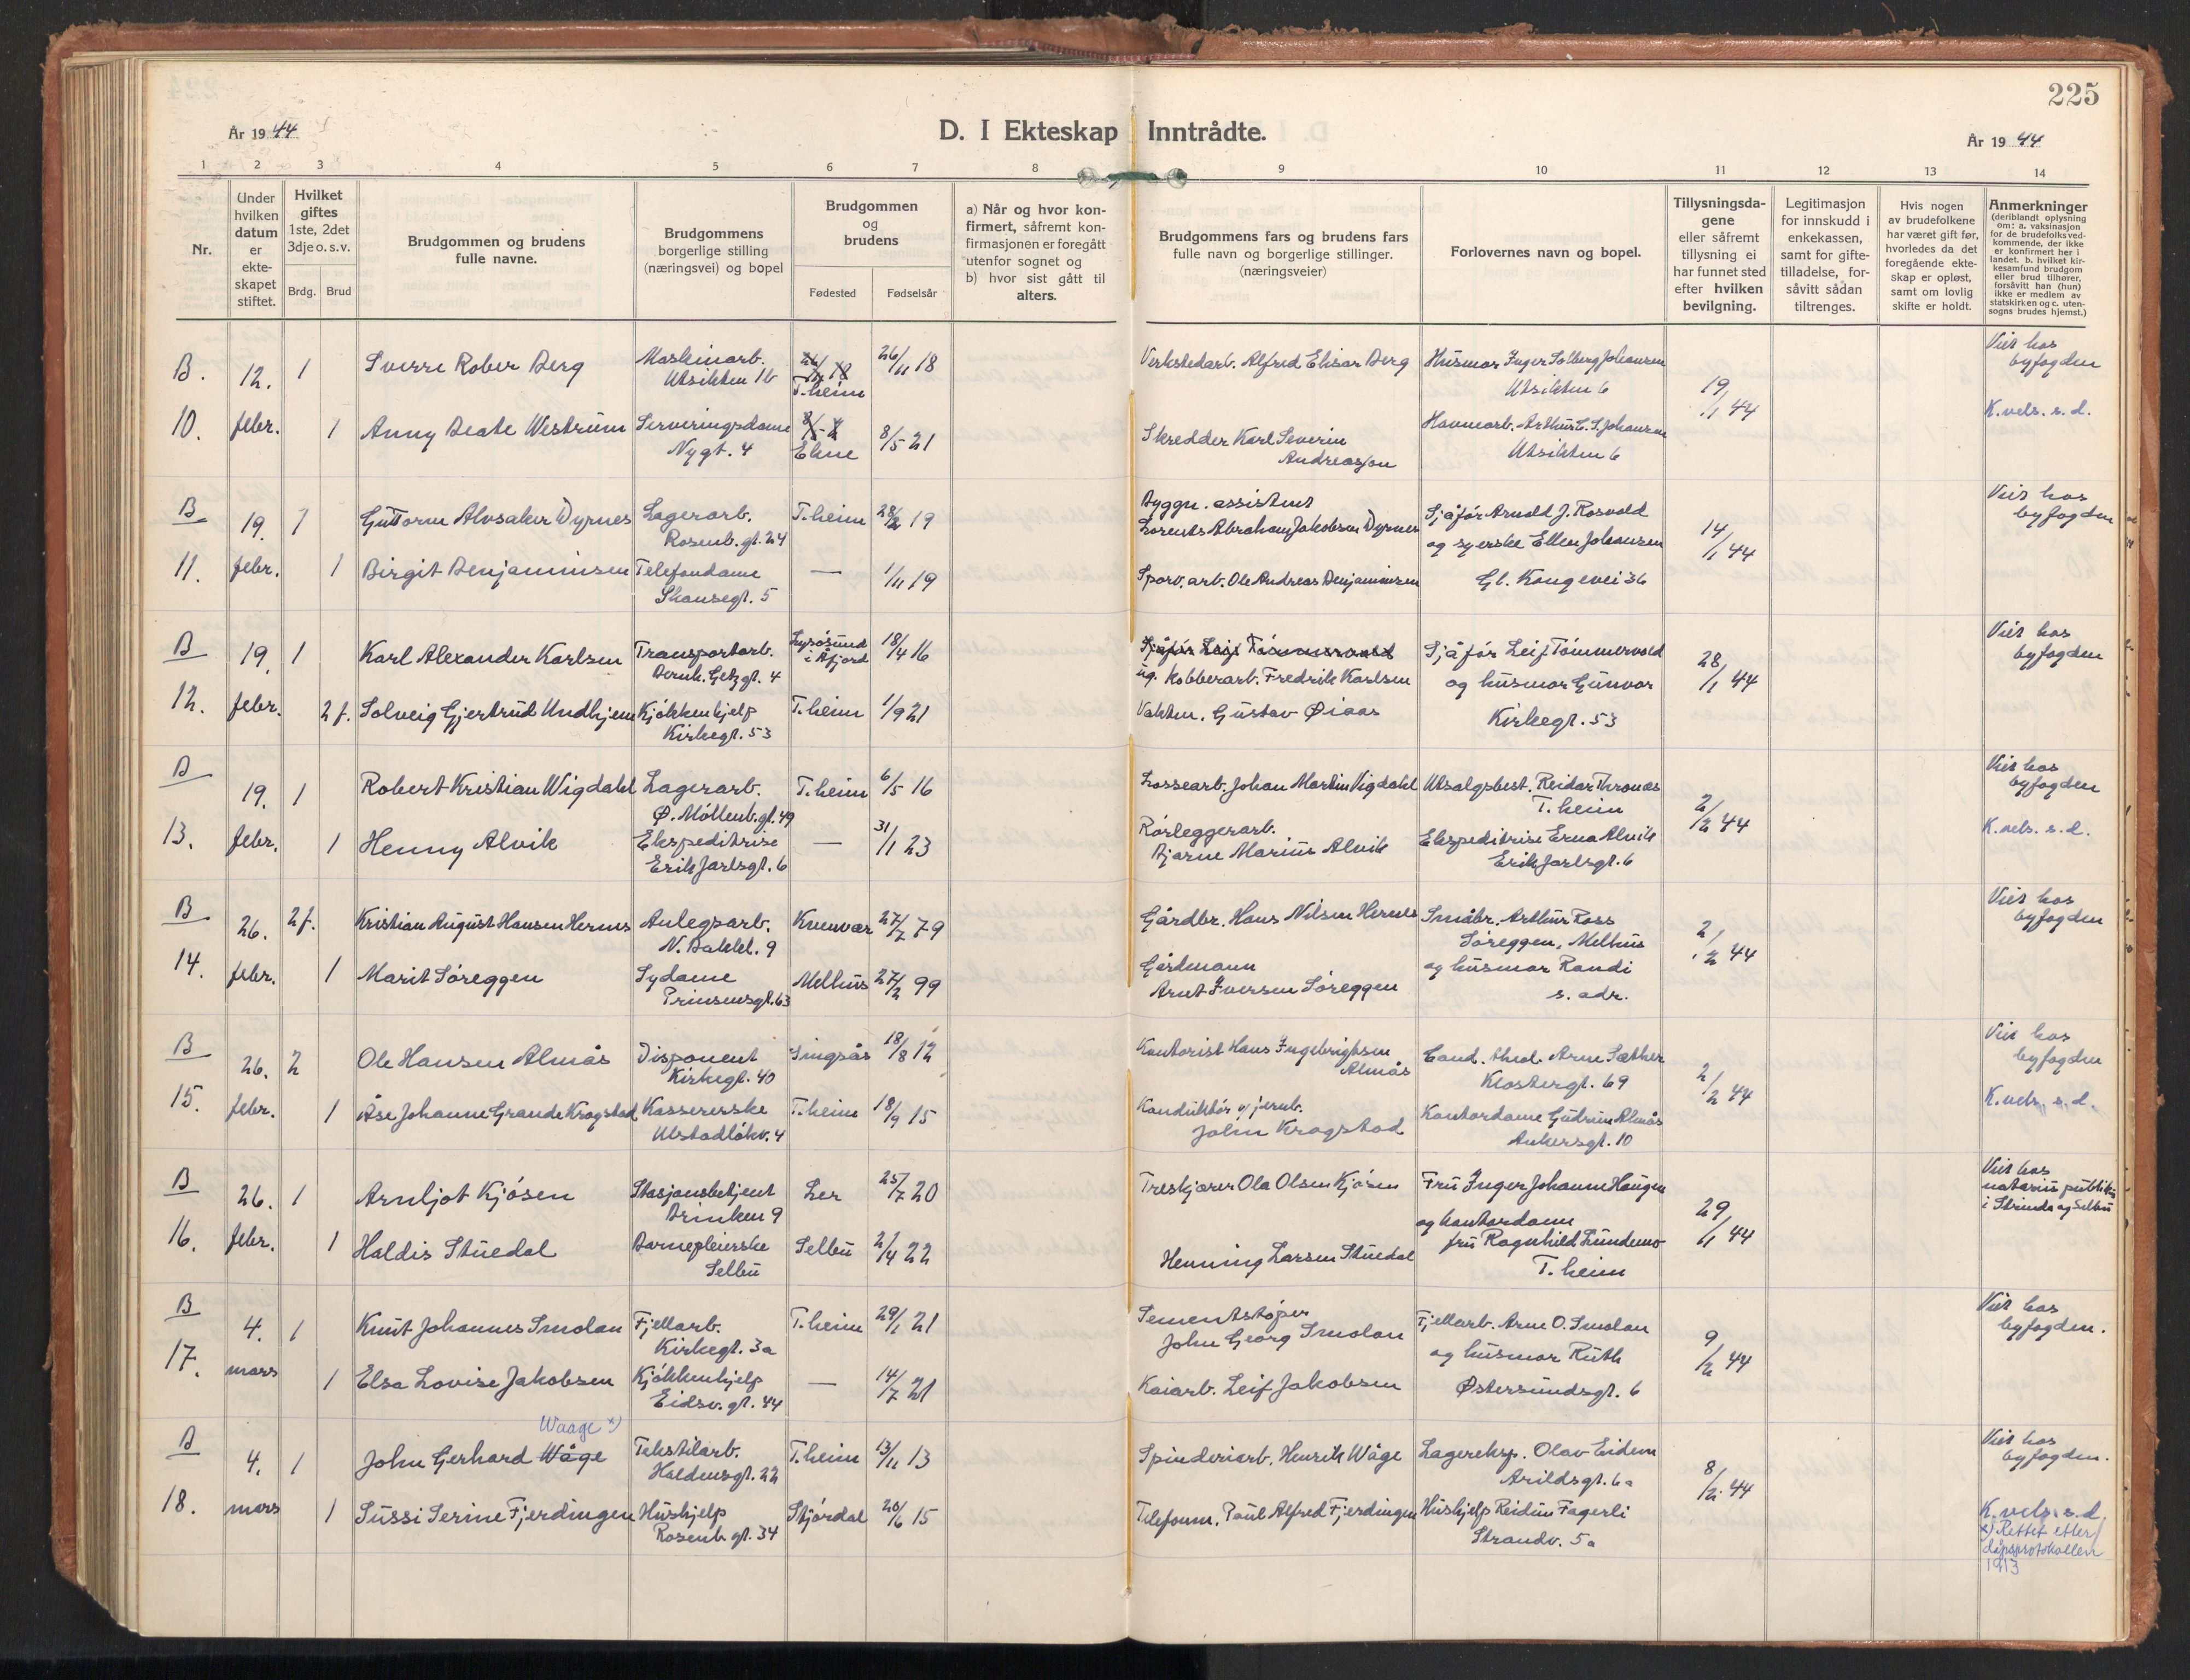 225
År 1944
D. I Ekteskap Inntrådte.
År 1944
1 2 3 4 5 6 7 8 9 10 11 12 13 14
Nr.
Under hvilken datum er ekte-skapet stiftet.
Hvilket giftes 1ste, 2det 3dje o. s. v.
Brdg. Brud
Brudgommen og brudens fulle navne.
Brudgommens borgerlige stilling (næringsvei) og bopel
Brudgommen og brudens
Fødested Fødselsår
a) Når og hvor kon-firmert, såfremt kon-firmasjonen er foregått utenfor sognet og b) hvor sist gått til alters.
Brudgommens fars og brudens fars fulle navn og borgerlige stillinger. (næringsveier)
Forlovernes navn og bopel.
Tillysningsda-gene eller såfremt tillysning ei har funnet sted efter hvilken bevilgning.
Legitimasjon for innskudd i enkekassen, samt for gifte-tilladelse, for-såvitt sådan tiltrenges.
Hvis nogen av brudefolkene har været gift før, hvorledes da det foregående ekte-skap er opløst, samt om lovlig skifte er holdt.
Anmerkninger (deriblandt oplysning om: a. vaksinasjon for de brudefolks ved-kommende, der ikke er konfirmert her i landet. b. hvilket kir-kesamfund brudgom eller brud tilhører, forsåvitt han (hun) ikke er medlem av statskirken og c. uten-sogns brudes hjemst.)
B. 12. 1 Sverre Rober Berg Maskinarb. Utsikten 1b T.heim 26/11 18 Verkstedarb. Alfred Elisar Berg Husmor Inger Solberg Johansen Utsikten 6 19/1 44 Viet hos byfogden
10. febr. 1 Anny Beate Westrum Serveringsdame Nygt. 4 Ekne 8/5 21 Skredder Karl Severin Andreasson Havnearb. Arthur C. S. Johansen Utsikten 6 K.vels. s. d.
B 19. 1 Guttorm Alvsaker Dyrnes Lagerarb. Rosenb. gt. 24 T.heim 28/2 19 Byggn. assistent Lorents Abraham Jakobsen Dyrnes Sjåfør Arnold J. Rosvold og syerske Ellen Johansen 14/1 44 Viet hos byfogden
11. febr. 1 Birgit Benjaminsen Telefondame Skansegt. 5 — 1/11 19 Sporv. arb. Ole Andreas Benjaminsen Gl. Kongevei 36
B 19. 1 Karl Alexander Karlsen Transportarb. Bernh. Getz gt. 4 Lysøsund i Åfjord 18/4 16 Sjåfør Leif Tømmervold ug. kobberarb. Fredrik Karlsen Sjåfør Leif Tømmervold og husmor Gunvor 28/1 44 Viet hos byfogden
12. febr. 2 f. Solveig Gjertrud Undhjem Kjøkkenhjelp Kirkegt. 53 T.heim 1/9 21 Vaktm. Gustav Øiaas Kirkegt. 53
B 19. 1 Robert Kristian Wigdahl Lagerarb. Ø. Møllenb. gt. 49 T.heim 6/5 16 Lossearb. Johan Martin Vigdahl Utsalgsbest. Reidar Thronæs T.heim 2/2 44 Viet hos byfogden
13. febr. 1 Henny Alvik Ekspeditrise Erik Jarlsgt. 6 — 31/1 23 Rørleggerarb. Bjarne Marius Alvik Ekspeditrise Erna Alvik Erik Jarlsgt. 6 K.vels. s. d.
B 26. 2 f. Kristian August Hansen Hernes Anlegsarb. N. Bakkl. 9 Kvenvær 27/7 79 Gårdbr. Hans Nilsen Hernes Småbr. Arthur Ross Søreggen, Melhus 2/2 44 Viet hos byfogden
14. febr. 1 Marit Søreggen Sydame Prinsensgt. 63 Melhus 27/2 99 Gårdmann Arnt Iversen Søreggen og husmor Randi s. adr.
B 26. 2 Ole Hansen Almås Disponent Kirkegt. 40 Singsås 18/8 12 Kontorist Hans Ingebrigtsen Almås Cand. theol. Arne Sæther Klostergt. 69 2/2 44 Viet hos byfogden
15. febr. 1 Åse Johanne Grande Krogstad Kassererske Ulstadløkv. 4 T.heim 18/9 15 Konduktør v/ jernb. John Krogstad Kontordame Gudrun Almås Ankersgt. 10 K.vels. s. d.
B 26. 1 Arnljot Kjøsen Stasjonsbetjent Brinken 9 Ler 25/7 20 Treskjærer Ola Olsen Kjøsen Fru Inger Johanne Haugen og kontordame fru Ragnhild Lundemo T.heim 29/1 44 Viet hos notarius publikus i Strinda og Selbu
16. febr. 1 Haldis Stuedal Barnepleierske Selbu Selbu 2/4 22 Henning Larsen Stuedal
B 4. 1 Knut Johannes Smolan Fjellarb. Kirkegt. 3a T.heim 29/1 21 Sementstøper John Georg Smolan Fjellarb. Arne O. Smolan og husmor Ruth 9/2 44 Viet hos byfogden.
17. mars 1 Elsa Lovise Jakobsen Kjøkkenhjelp Eidsv. gt. 44 — 14/7 21 Kaiarb. Leif Jakobsen Østersundsgt. 6
B 4. 1 John Gerhard Wåge Waage x) Tekstilarb. Haldensgt. 22 T.heim 13/11 13 Spinderiarb. Henrik Wåge Lagereksp. Olav Eidem Arildsgt. 6a 8/2 44 Viet hos byfogden.
18. mars 1 Sussi Serine Fjerdingen Hushjelp Rosenb. gt. 34 Stjørdal 20/6 15 Telefonm. Paul Alfred Fjerdingen Hushjelp Reidun Fagerli Strandv. 5a K.vels. s. d.
x) Rettet etter dåpsprotokollen 1913